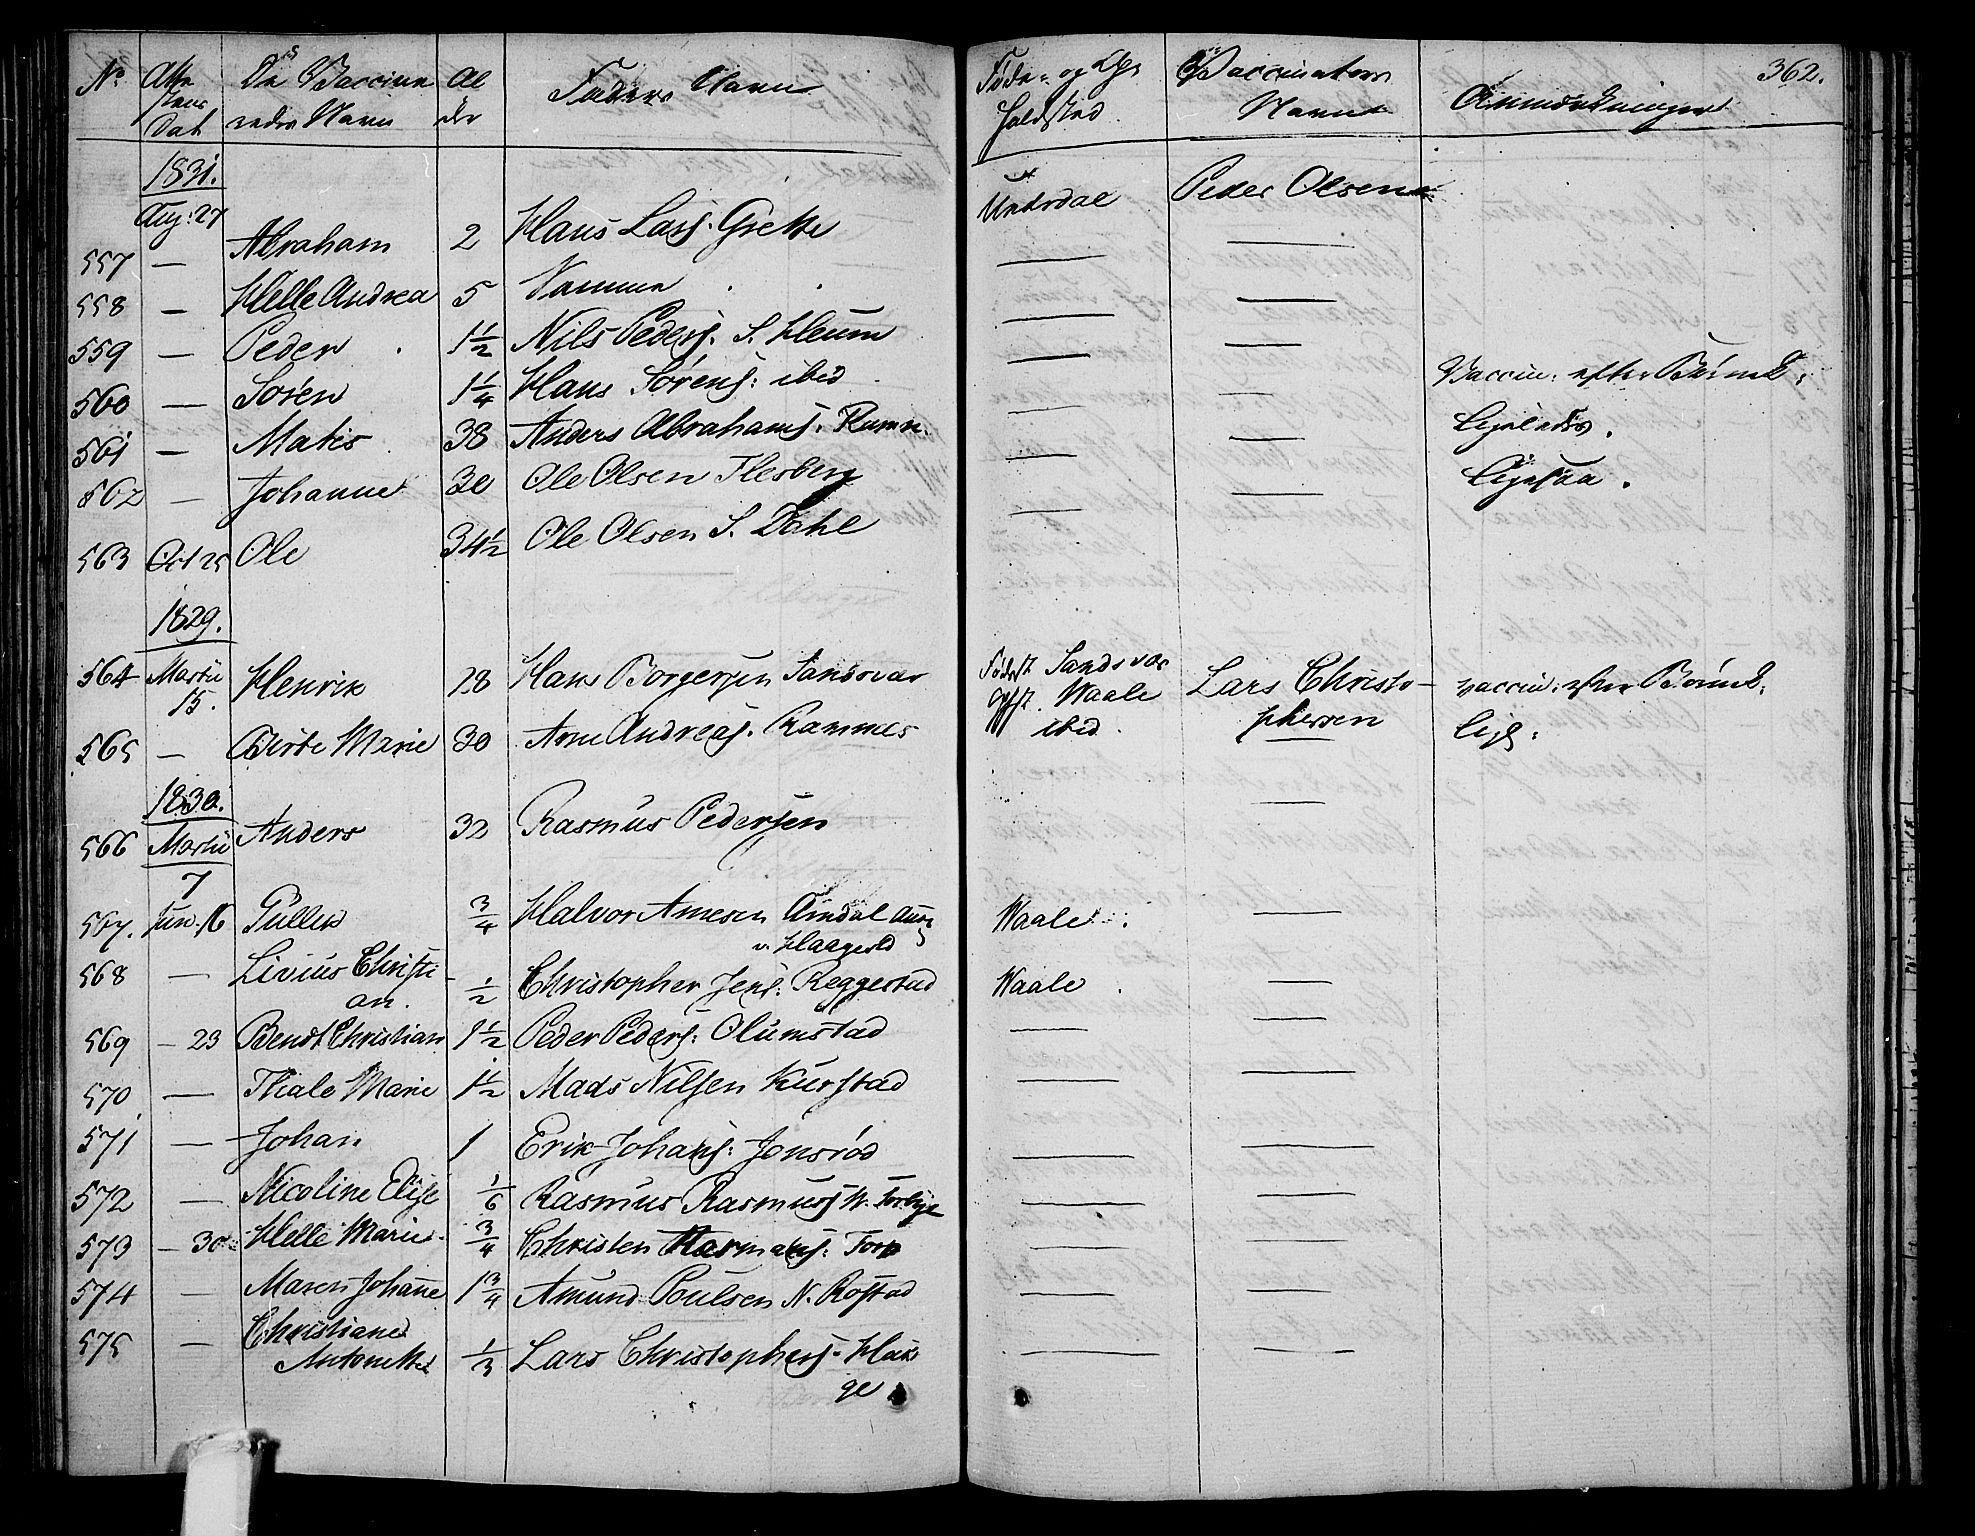 362.
No Atte stens Dat De Vaccine redes Navn Al der Faders Navn Føde- og Op holdsted Vaccinators Navn Anmærkninger
1831.
Aug: 27
Undrdal Peder Olsen
557 — Abraham 2 Hans Lars: Grette — —
558 — Helle Andrea 5 Samme — —
559 — Peder 1½ Nils Peders: S. Kleum — —
560 — Søren 1¼ Hans Sørens: ibid — — Vaccin: efter Børnek:
561 — Matis 38 Anders Abrahams: Ramn. — — Ligeledes.
562 — Johanne 30 Ole Olsen Flesberg — — Ligesaa.
563 Oct 25 Ole 34½ Ole Olsen S. Dahl —
1829.
564 Martii 15. Henrik 28 Hans Borgersen Sandsvær Fødest Sandsvær Waale Lars Christo- vaccin: efter Børnek.
565 — Birte Marie 30 Arne Andreas: Rammes ibid. phersen lige:
1830.
566 Martii 7 Anders 32 Rasmus Pedersen —
567. Jun. 16 Gullik ¾ Halvor Arnesen Amdal Waale. —
v. Haagestd
568 — Livius Christi- ½ Christopher Jens: Reggestad Waale. —
an.
569 — 23 Bendt Christian 1½ Peder Peders: Olumstad — —
570 — Thale Marie 1½ Mads Nilsen Kurstad — —
571 — Johan 1 Erik Johans: Jonsrød — —
572 — Nicoline Elise 1/6 Rasmus Rasmuss N. Torbye — —
573 — 30 Helle Marie ¾ Christen Rasmus: Torp — —
574 — Maren Johane 1¾ Amund Poulsen N. Rostad — —
575 — Christiane Antonette 1/3 Lars Christophers: Hau- — —
ge